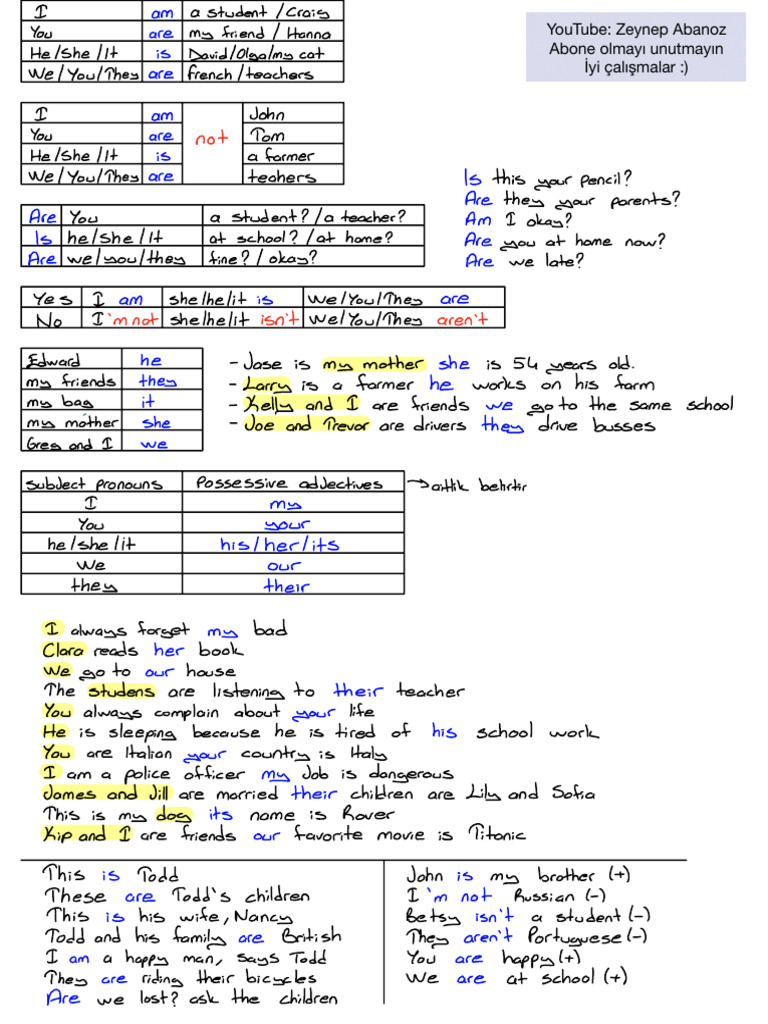 YouTube: Zeynep Abanoz
Abone olmayı unutmayın
İyi çalışmalar :)
I am a student / Craig
You are my friend / Hanna
He/She/It is David/Olga/my cat
We/You/They are french/teachers
I am not John
You are Tom
He/She/It is a farmer
We/You/They are teahers
Is this your pencil?
Are they your parents?
Am I okay?
Are you at home now?
Are we late?
Are You a student? /a teacher?
Is he/She/It at school? /at home?
Are we/you/they fine? / okay?
Yes I am she/he/it is We/You/They are
No I'm not she/he/it isn't We/You/They aren't
Edward he
my friends they
my bag it
my mother she
Greg and I we
- Jase is my mother she is 54 years old.
- Larry is a farmer he works on his farm
- Kelly and I are friends we go to the same school
- Joe and Trevor are drivers they drive busses
subject pronouns Possessive adjectives → aitlik belirtir
I my
You your
he/she/it his/her/its
We our
they their
I always forget my bad
Clara reads her book
We go to our house
The studens are listening to their teacher
You always complain about your life
He is sleeping because he is tired of his school work
You are Italian your country is Italy
I am a police officer my Job is dangerous
James and Jill are married their children are Lily and Sofia
This is my dog its name is Rover
Kip and I are friends our favorite movie is Titonic
This is Todd
These are Todd's children
This is his wife, Nancy
Todd and his family are British
I am a happy man, says Todd
They are riding their bicycles
Are we lost? ask the children
John is my brother (+)
I 'm not Russian (-)
Betsy isn't a student (-)
They aren't Portuguese (-)
You are happy (+)
We are at school (+)